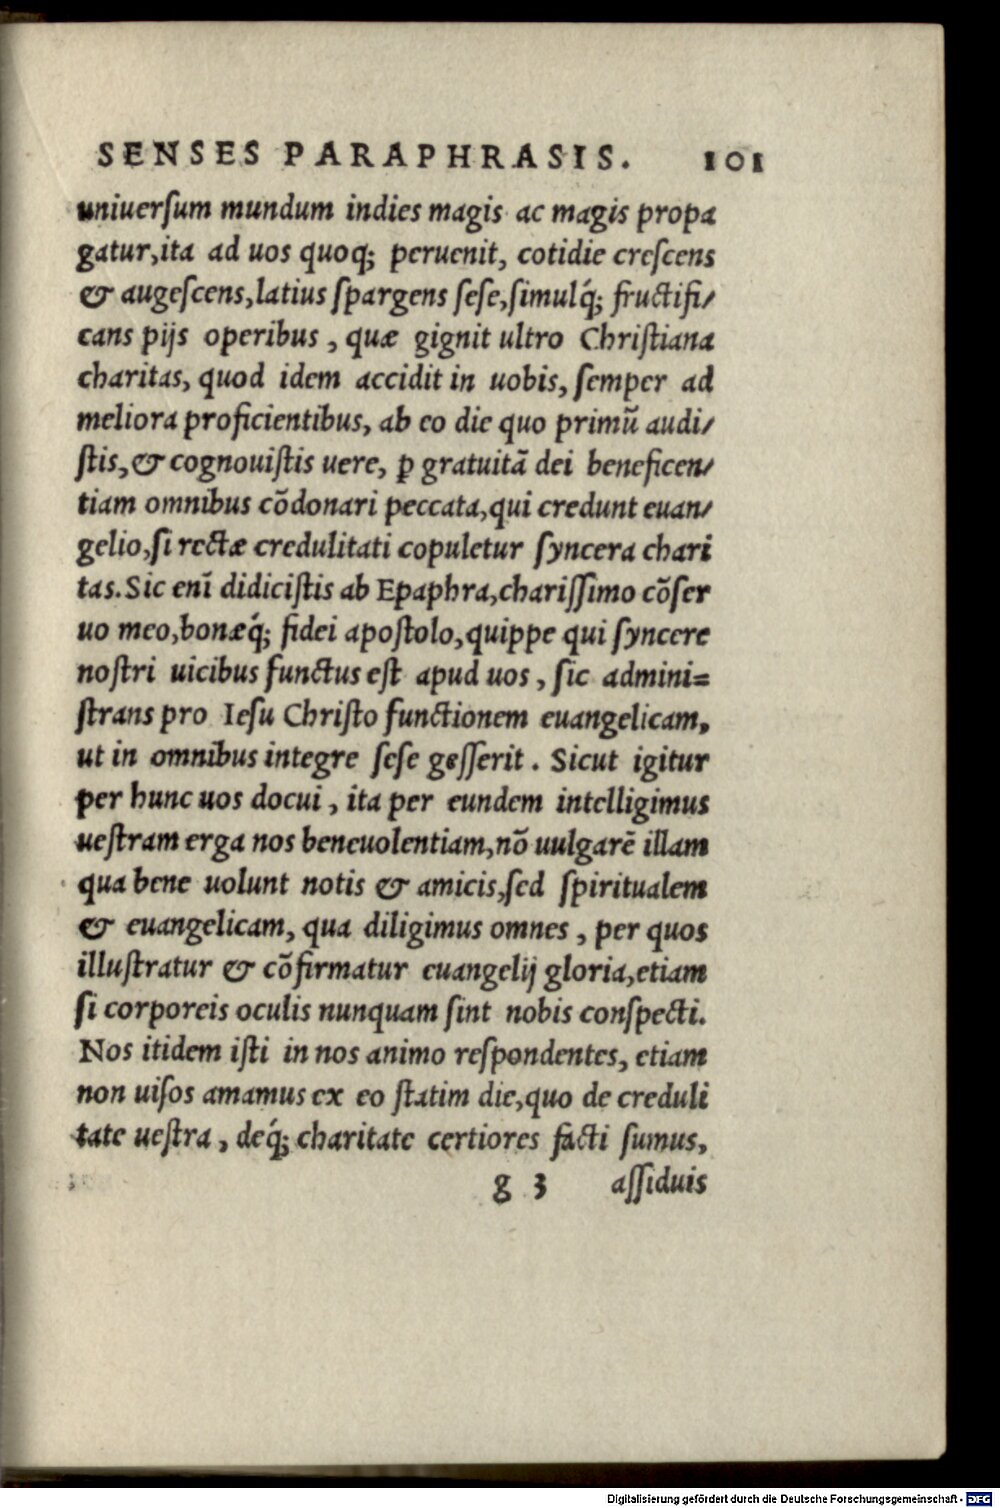 SENSES PARAPHRASIS. 101
uniuerſum mundum indies magis ac magis propa
gatur,ita ad uos quoq; peruenit, cotidie creſcens
& augeſcens,latius ſpargens ſeſe,ſimulq́; fructifi/
cans pijs operibus , quæ gignit ultro Chriſtiana
charitas, quod idem accidit in uobis, ſemper ad
meliora proficientibus, ab eo die quo primũ audi/
ſtis,& cognouiſtis uere, ꝑ gratuitã dei beneficen/
tiam omnibus cõdonari peccata,qui credunt euan/
gelio,ſi rectæ credulitati copuletur ſyncera chari
tas. Sic enĩ didiciſtis ab Epaphra,chariſſimo cõſer
uo meo,bonæq́; fidei apoſtolo,quippe qui ſyncere
noſtri uicibus functus eſt apud uos , ſic admini=
ſtrans pro Ieſu Chriſto functionem euangelicam,
ut in omnibus integre ſeſe geſſerit . Sicut igitur
per hunc uos docui , ita per eundem intelligimus
ueſtram erga nos beneuolentiam,nõ uulgarẽ illam
qua bene uolunt notis & amicis,ſed ſpiritualem
& euangelicam, qua diligimus omnes , per quos
illuſtratur & cõfirmatur euangelij gloria,etiam
ſi corporeis oculis nunquam ſint nobis conſpecti.
Nos itidem iſti in nos animo reſpondentes, etiam
non uiſos amamus ex eo ſtatim die,quo de creduli
tate ueſtra , deq́; charitate certiores facti ſumus,
g 3 aſſiduis
Digitalisierung gefördert durch die Deutsche Forschungsgemeinschaft - DFG